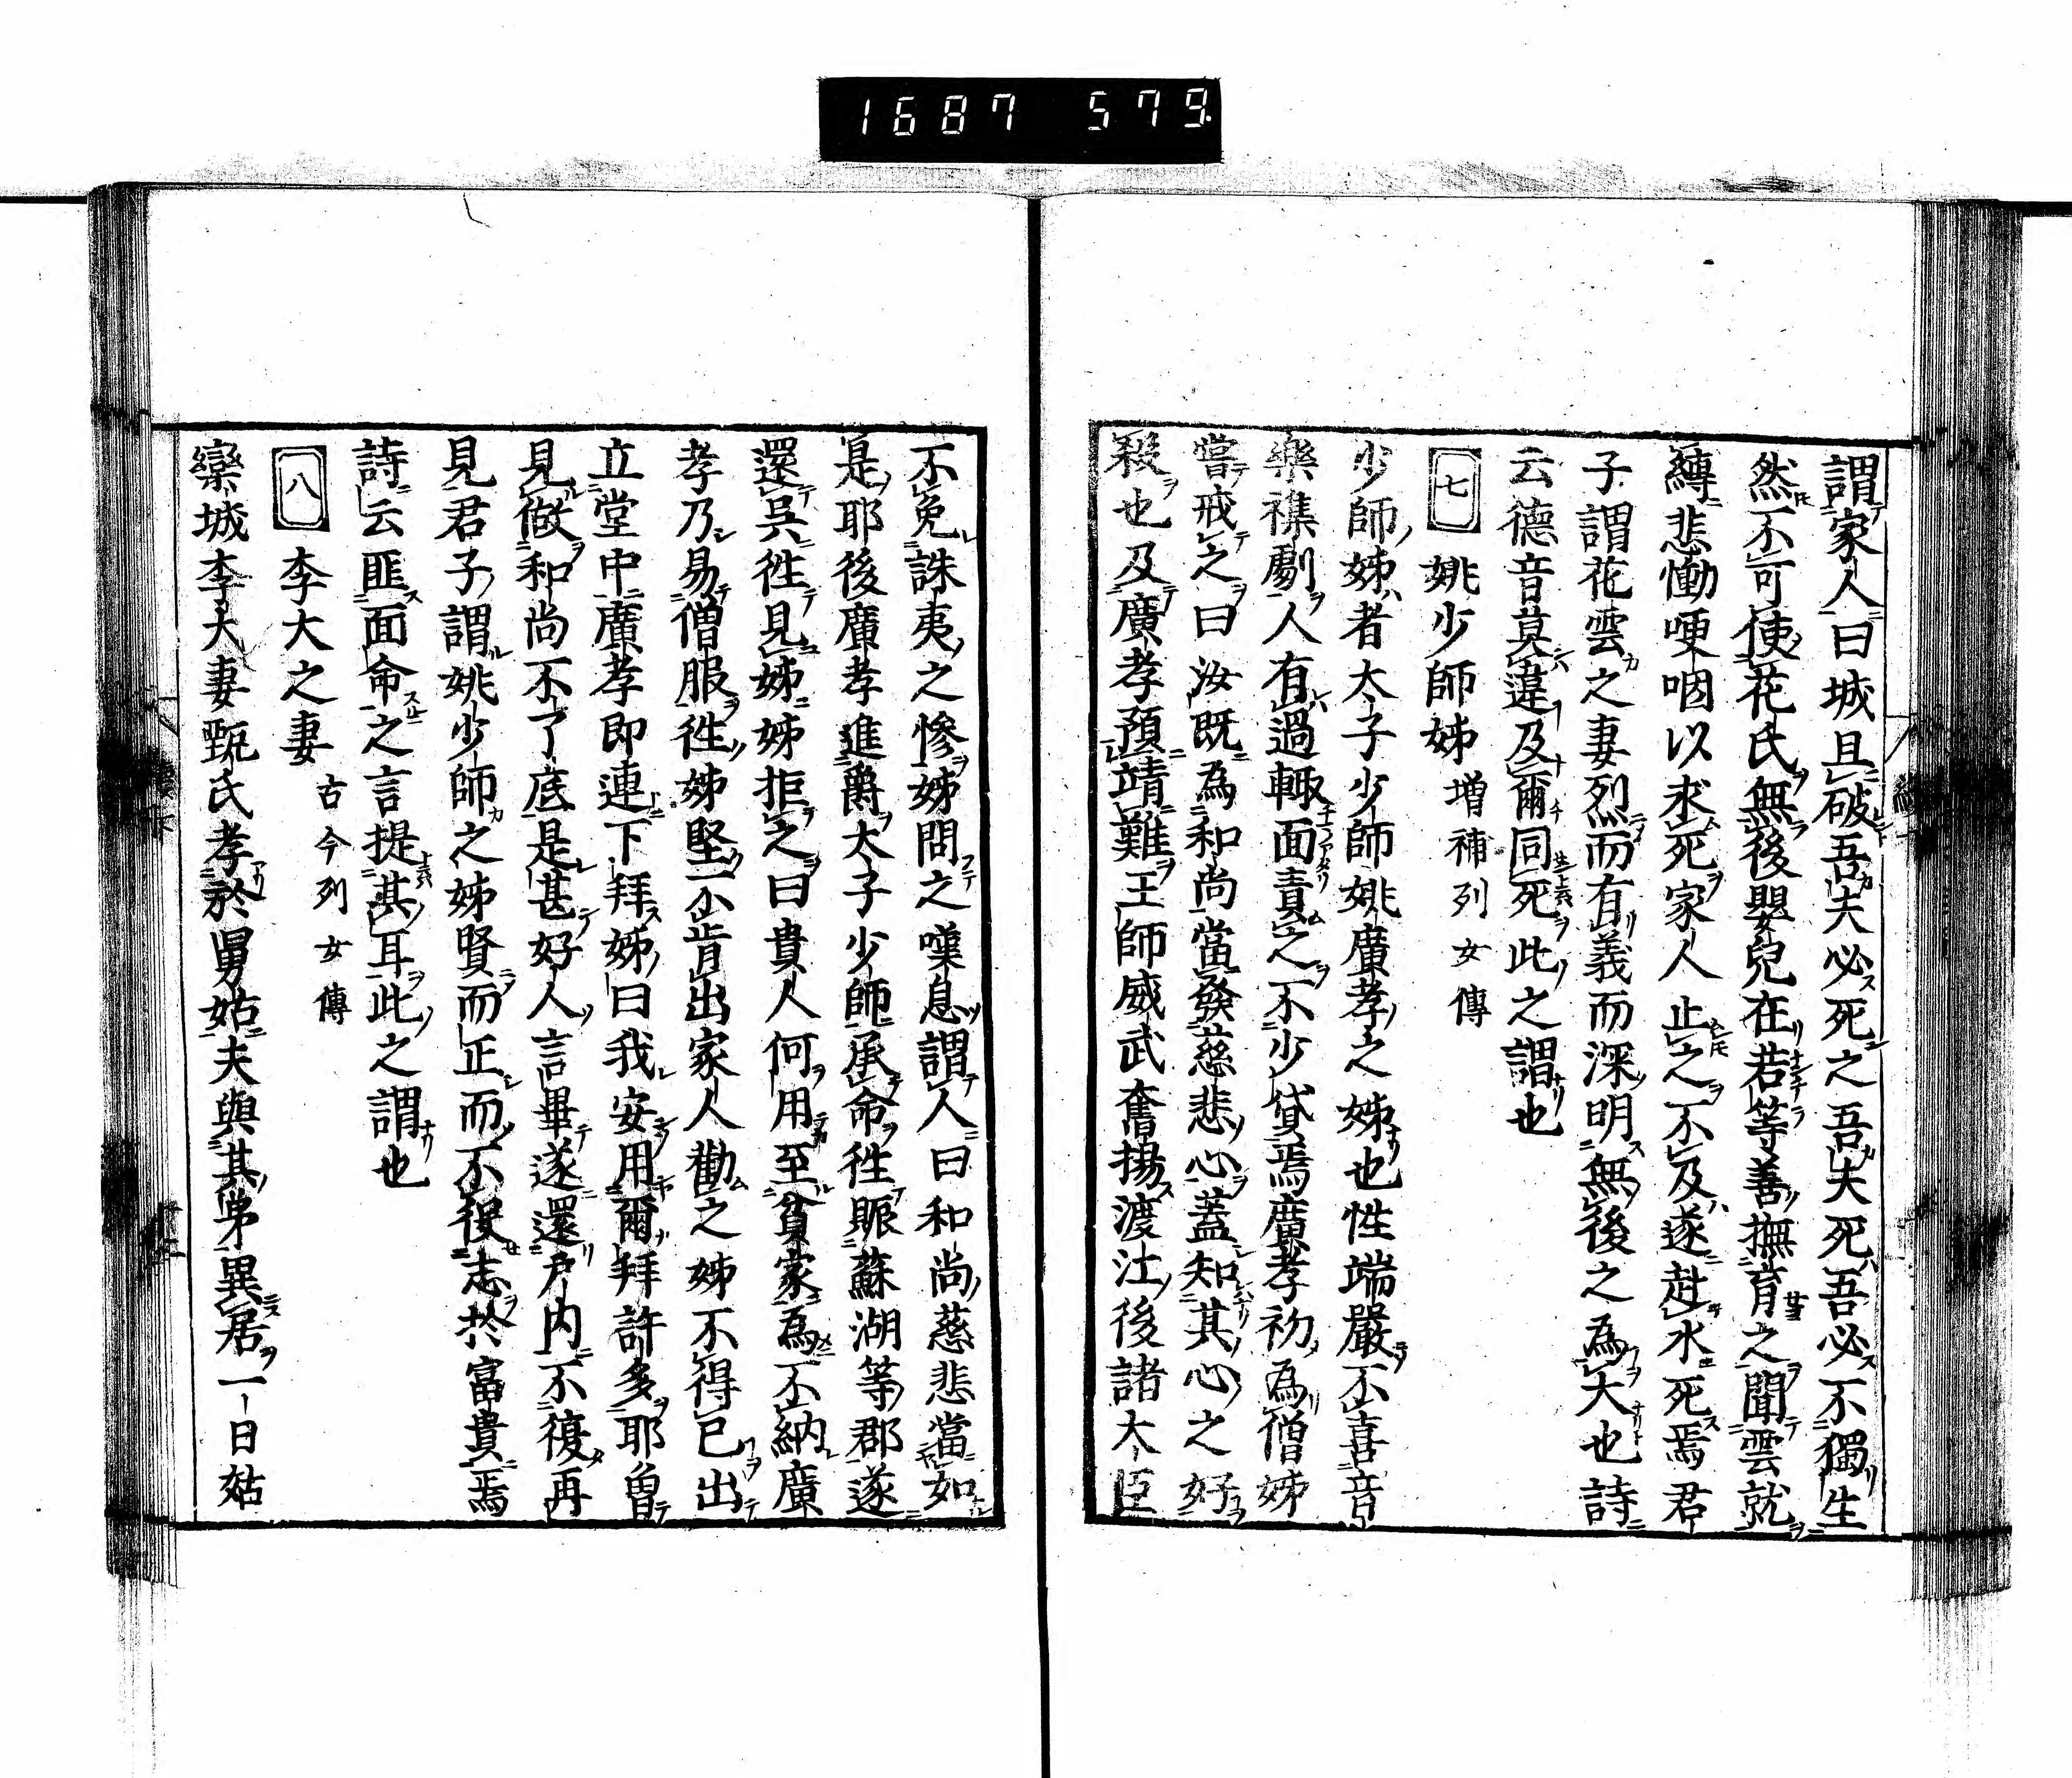 1687 579
謂家人曰城且破吾夫必死之吾夫死吾必不獨生
然不可使花氏無後嬰兒在若等善撫育之聞雲就
縛悲慟哽咽以求死家人止之不及遂赴水死焉君
子謂花雲之妻烈而有義而深明無後之為大也詩
云德音莫違及爾同死此之謂也
七 姚少師姊 増補列女傳
少師姊者太子少師姚廣孝之姊也性端嚴不喜音
樂襍劇人有過輙面責之不少貸焉廣孝初為僧姊
嘗戒之曰汝既為和尚當發慈悲心蓋知其心之好
殺也及廣孝預靖難王師威武奮揚渡江後諸大臣
不免誅夷之惨姊問之嘆息謂人曰和尚慈悲當如
是耶後廣孝進爵太子少師承命徃賑蘇湖等郡遂
還呉徃見姊姊拒之曰貴人何用至貧家為不納廣
孝乃易僧服徃姊堅不肯出家人勸之姊不得已出
立堂中廣孝即連下拜姊曰我安用爾拜許多耶曽
見做和尚不了底是甚好人言畢遂還戸内不復再
見君子謂姚少師之姊賢而正而不役志於富貴焉
詩云匪面命之言提其耳此之謂也
八 李大之妻 古今列女傳
欒城李大妻甄氏孝於舅姑夫與其弟異居一日姑